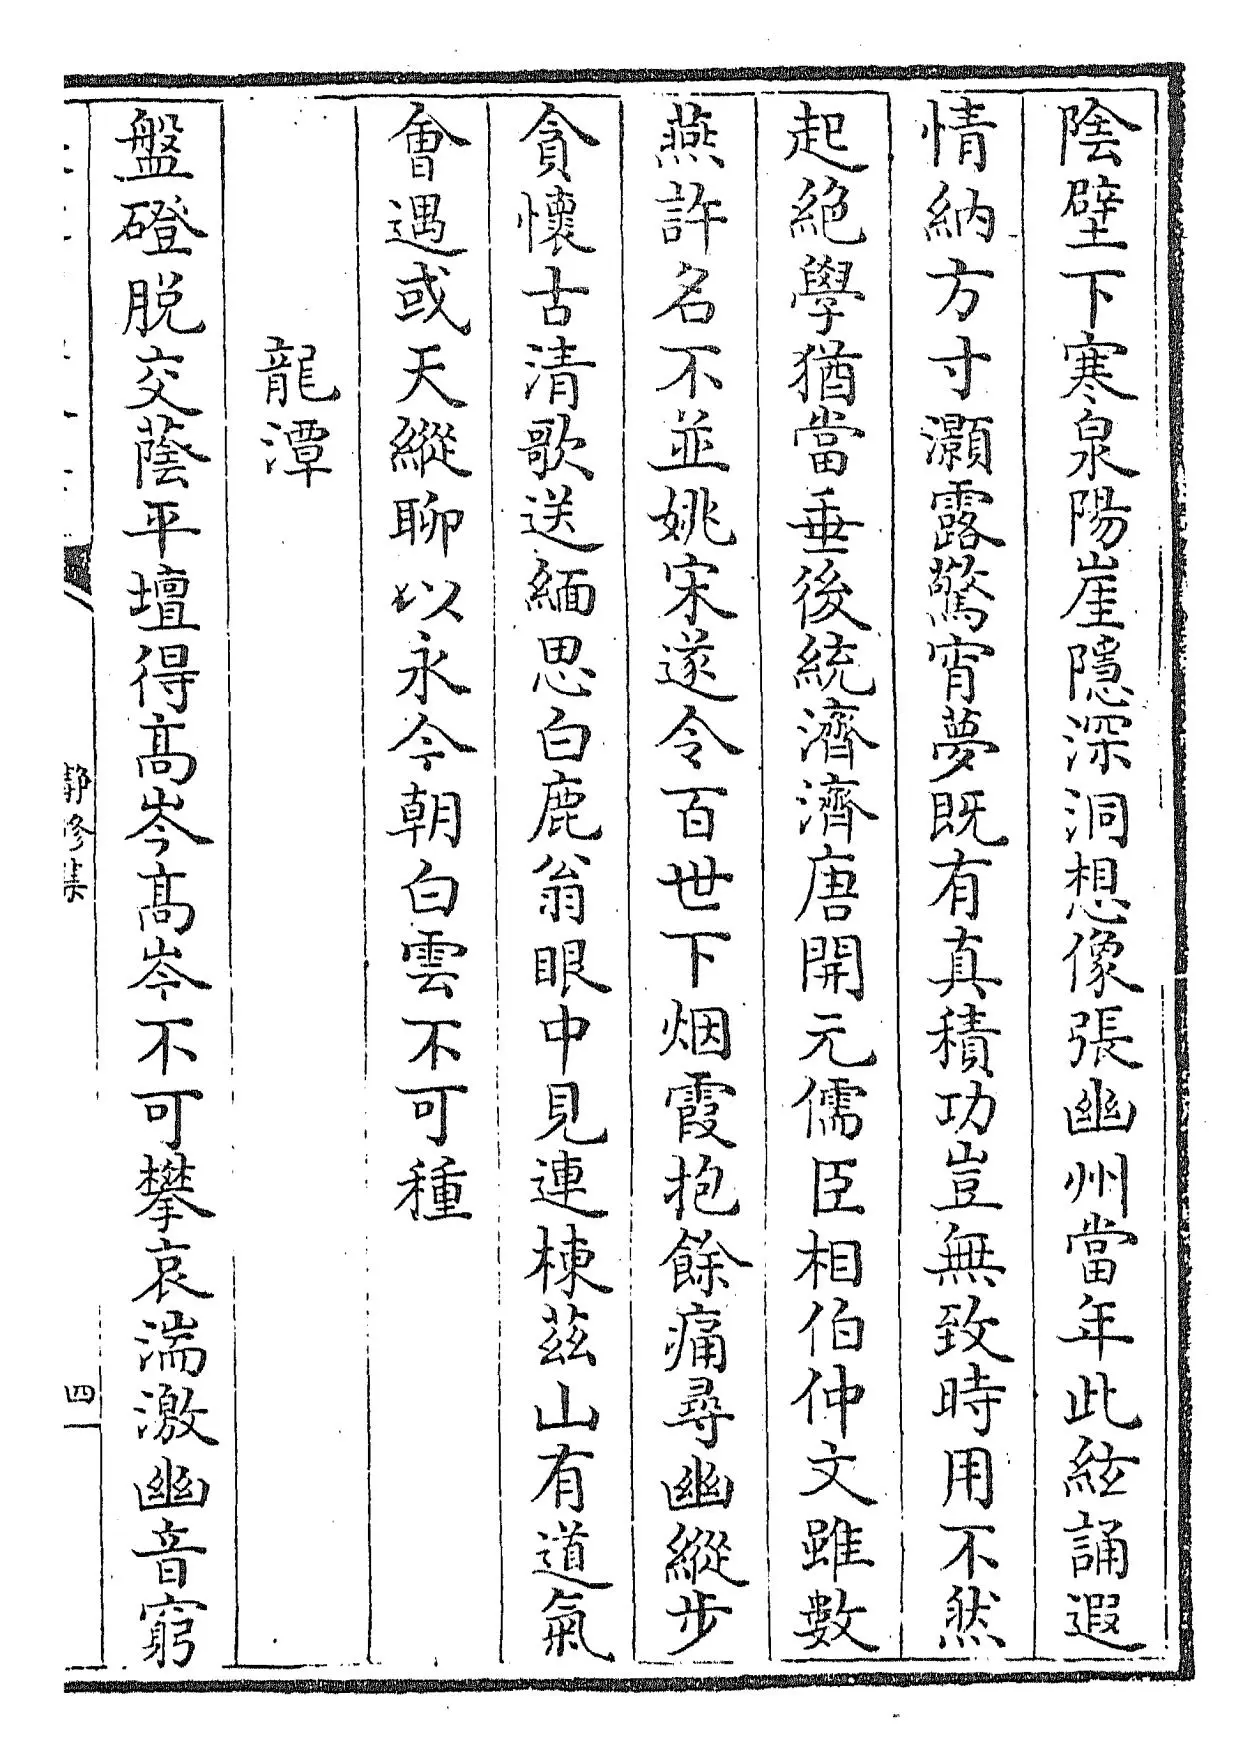 陰壁下寒泉陽崖隱深洞想像張幽州當年此絃誦遐
情納方寸灝露驚宵夢既有真積功豈無致時用不然
起絶學猶當垂後統濟濟唐開元儒臣相伯仲文雖數
燕許名不並姚宋遂令百世下烟霞抱餘痛尋幽縱步
貪懷古清歌送緬思白鹿翁眼中見連棟茲山有道氣
會遇或天縱聊以永今朝白雲不可種
龍潭
盤磴脱交蔭平壇得高岑高岑不可攀哀湍激幽音窮
靜修集
四